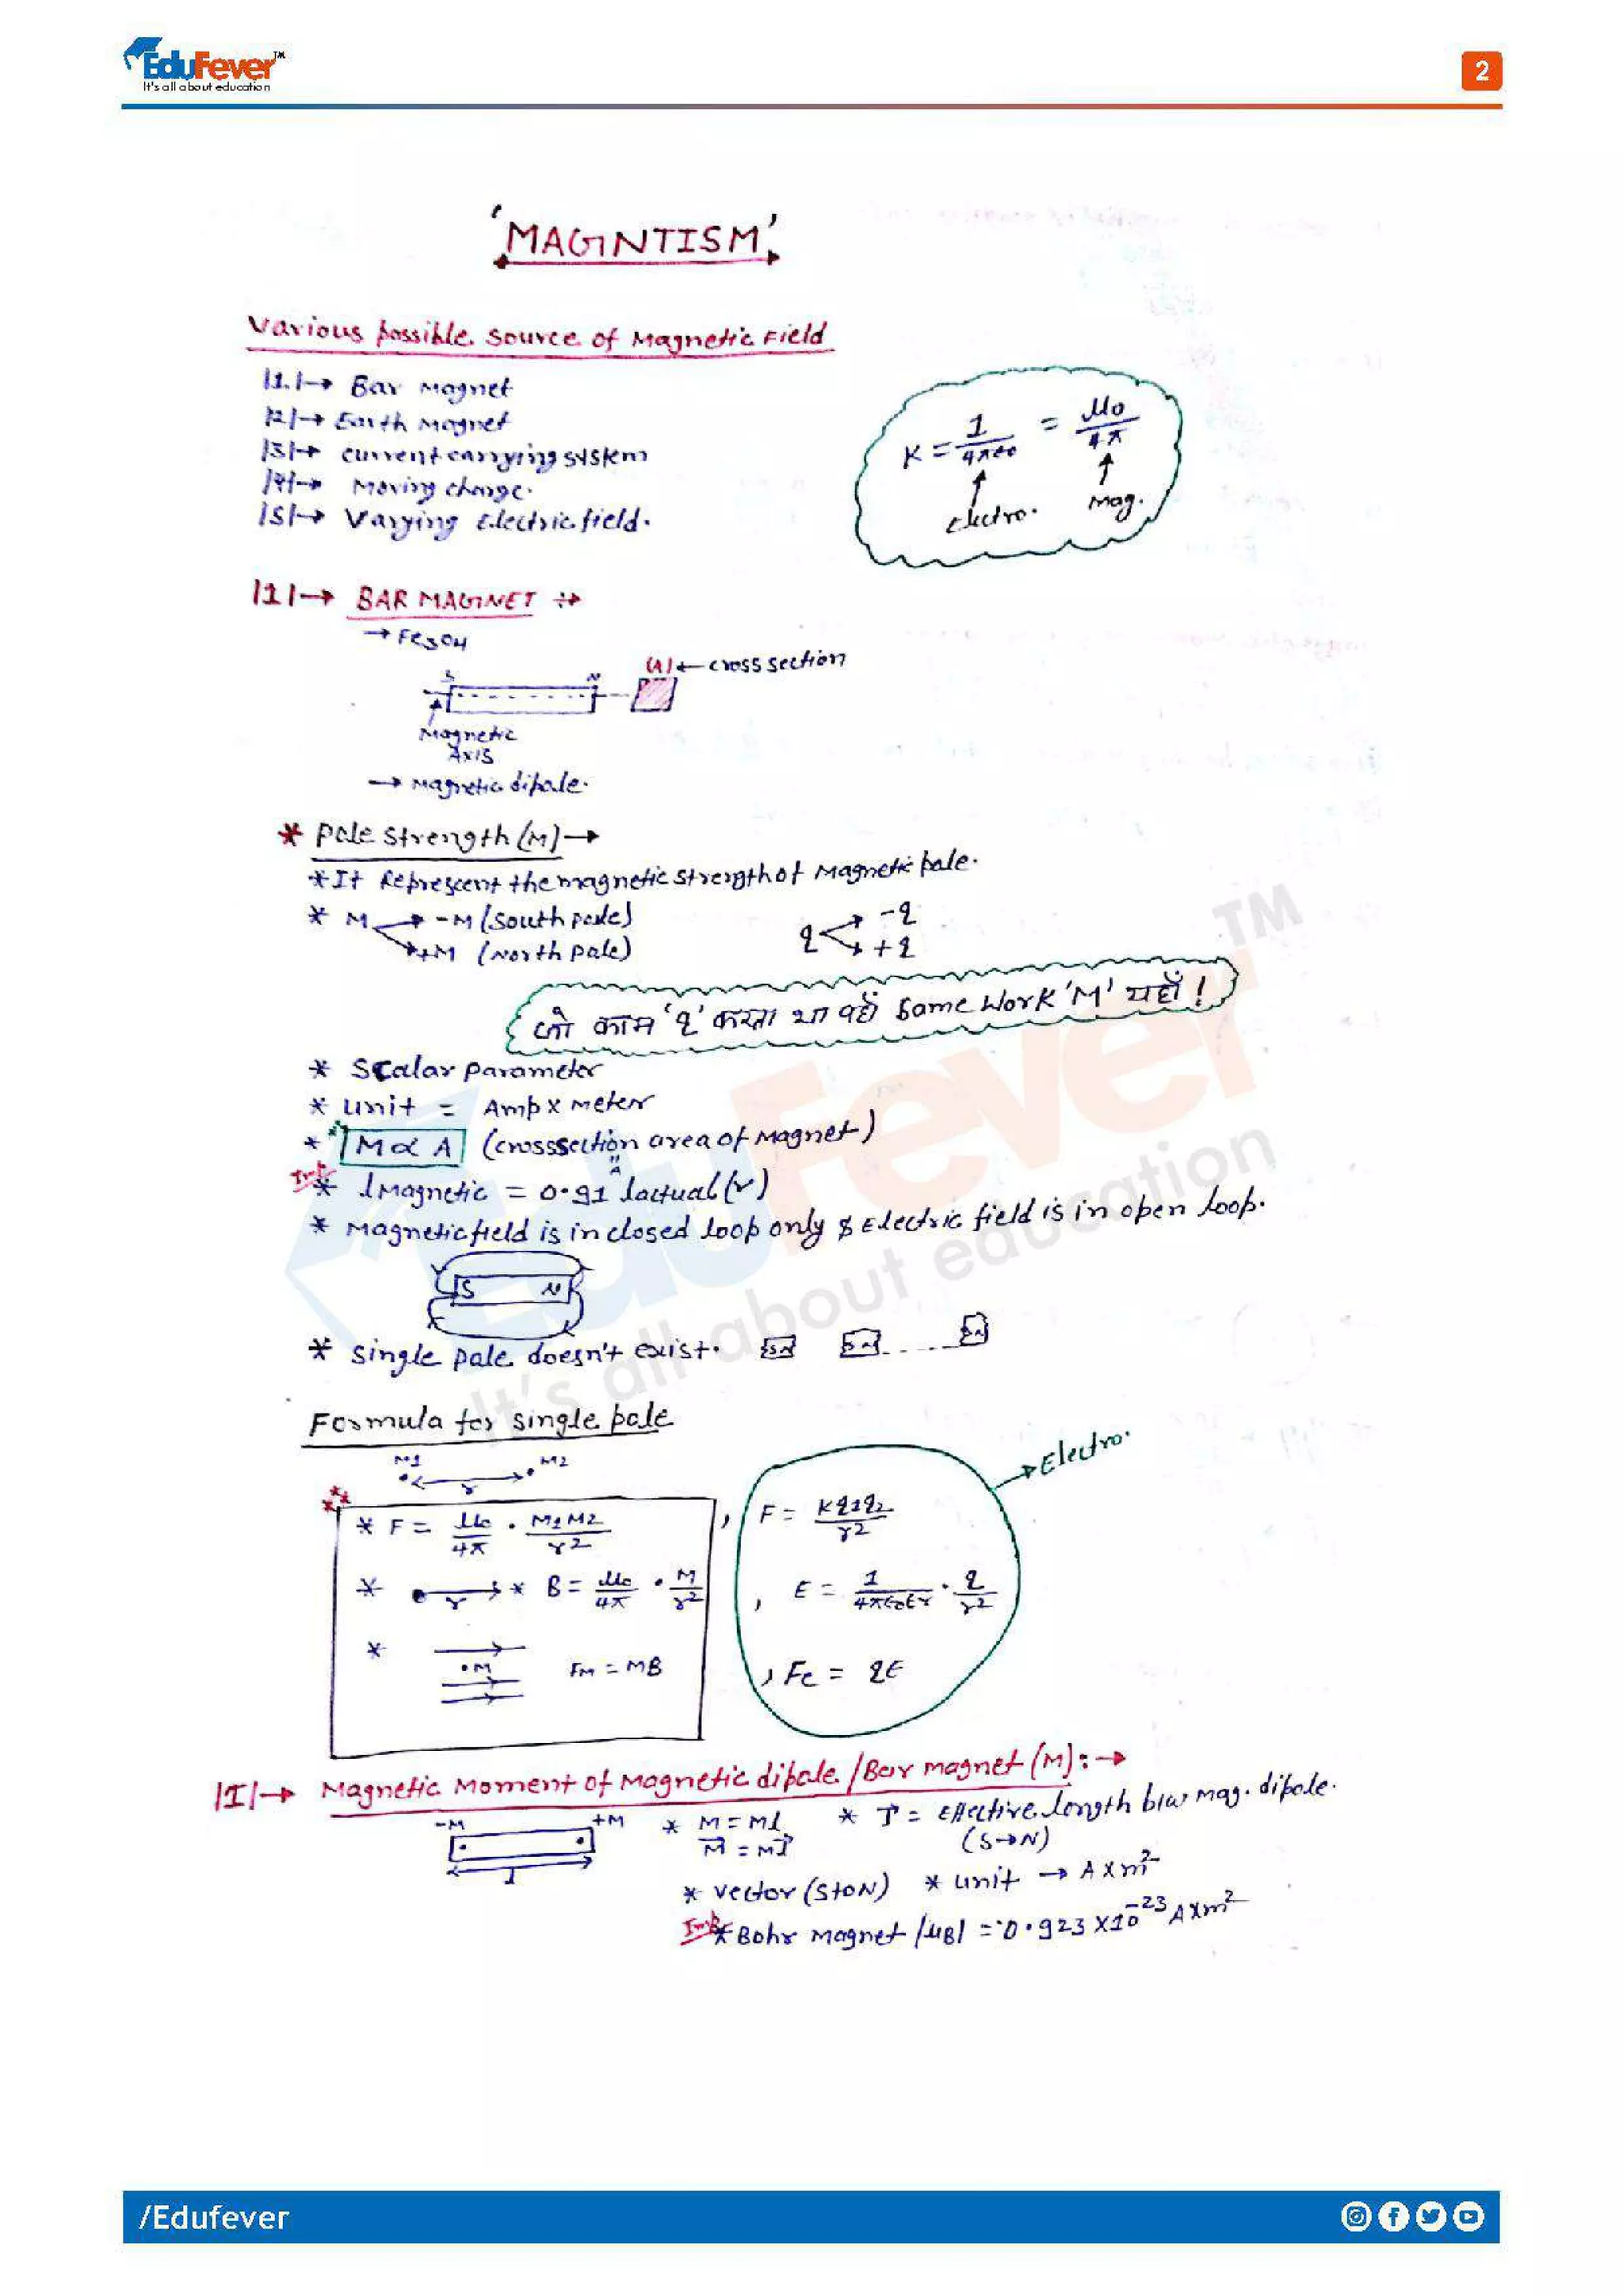 EduFever™
It's all about education
2
'MAGNTISM'
Various possible source of Magnetic Field
|1.|→ Bar magnet
|2|→ Earth Magnet
|3|→ current carrying system
|4|→ Moving charge.
|5|→ Varying Electric field.
K = 1/4πε0 = μ0/4π
↑ ↑
Electro. Mag.
|1|→ BAR MAGNET ÷→
→ Fe3O4
(A)← cross section
S N
Magnetic
Axis
→ Magnetic dipole.
* Pole strength (M)→
*It Represcent the magnetic strength of Magnetic pole.
* M → -M (south pole)
→ +M (North pole)
q → -q
→ +q
जो काम 'q' करता था वही Same Work 'M' यहाँ !
* Scalar Parameter
* unit = Amp x meter
* M ∝ A (crosssection area of Magnet)
A
Imp * lMagnetic = 0.91 lactual (r)
* Magnetic field is in closed loop only & Electric field is in open loop.
S N
* single pole doesn't exist. SN SN.....SN
Formula for single pole
M1 M2
r
→Electro.
* F = μ0/4π . M1M2/r2 , F = Kq1q2/r2
* r * B = μ0/4π . M/r2 , E = 1/4πε0εr . q/r2
* .M FM = MB , Fe = qE
|I|→ Magnetic Moment of Magnetic dipole / Bar magnet (M):→
-M +M * M = Ml * l⃗ = Effective length b/w mag. dipole.
l M⃗ = Ml⃗ (S→N)
* vector (S to N) * unit → A x m2
Imp * Bohr Magnet |μB| = 0.923 x 10-23 A x m2
EduFever™
It's all about education
/Edufever